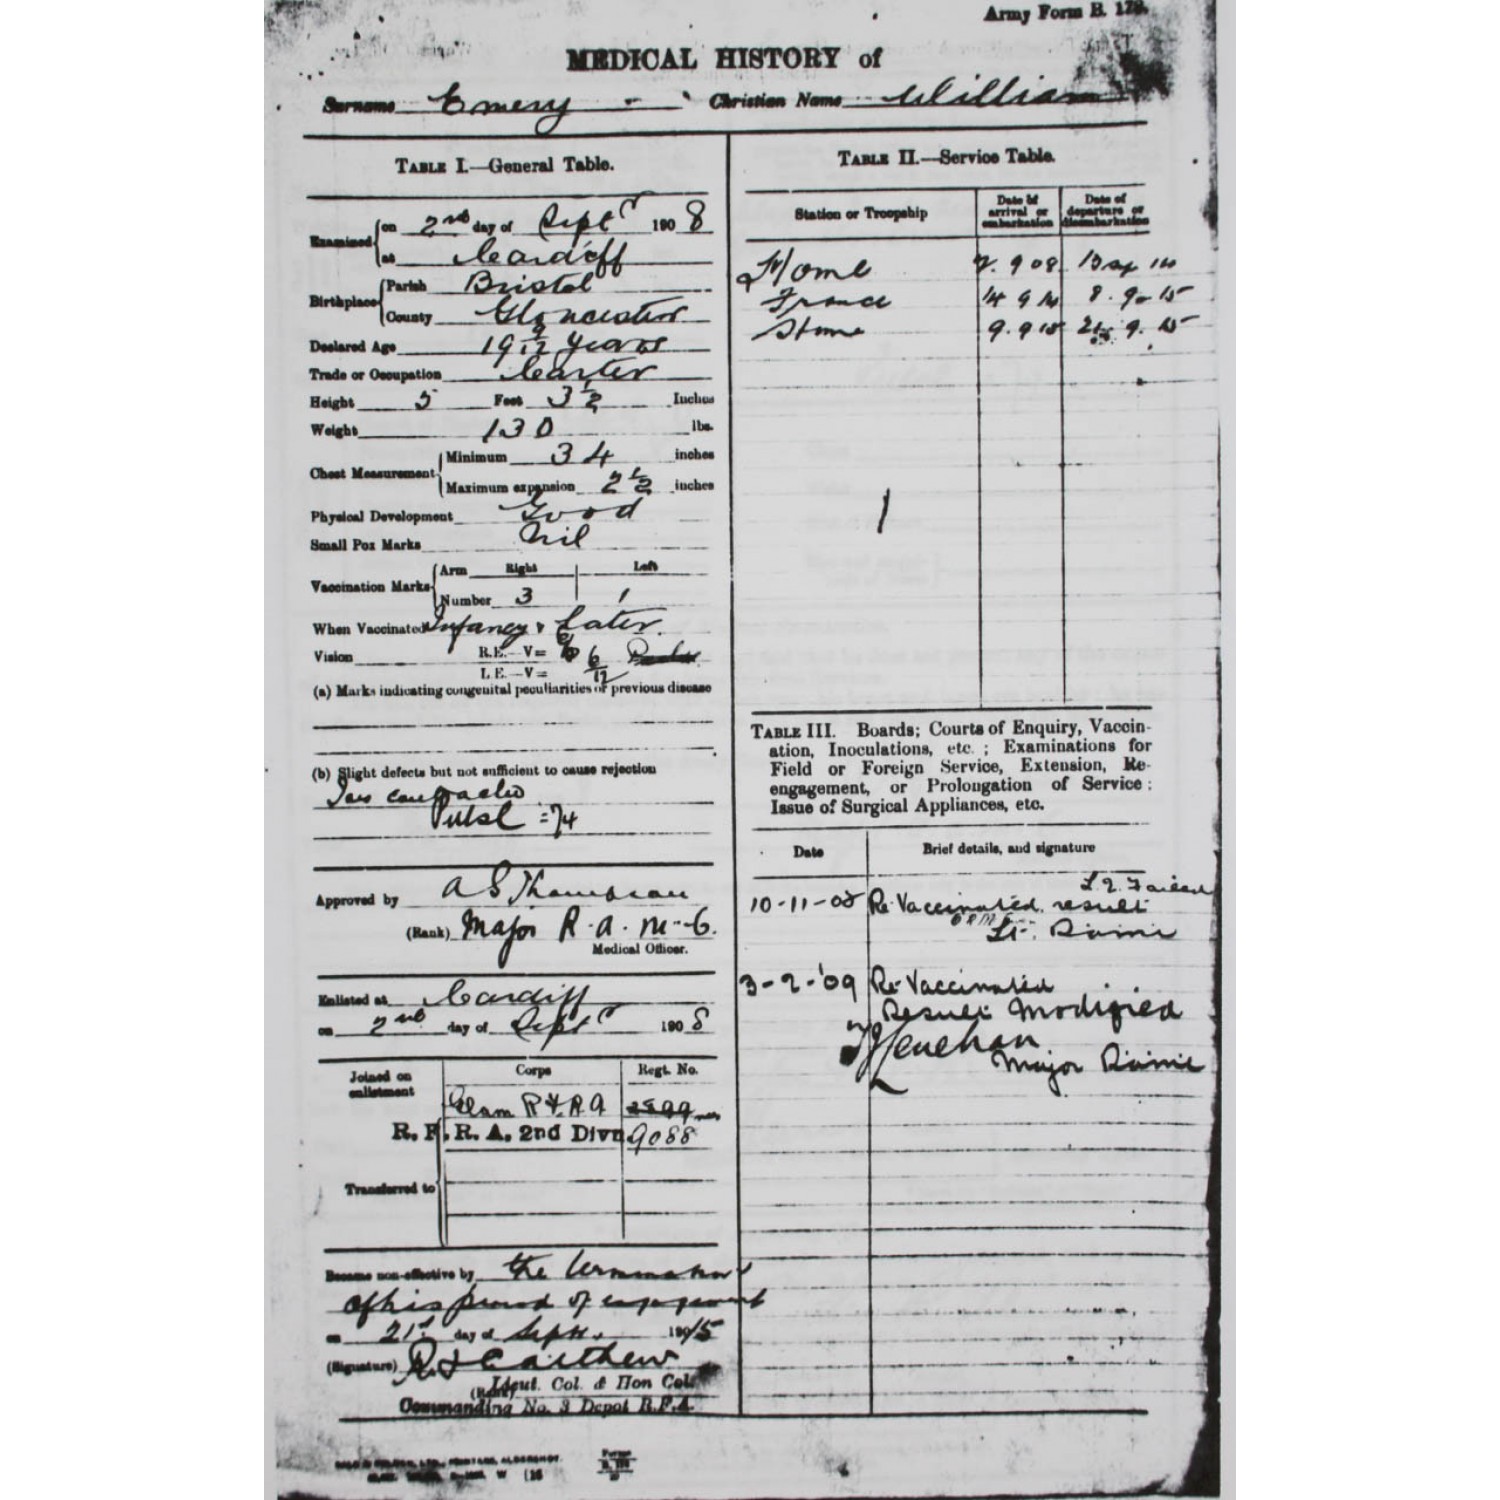 Army Form B. 178.
MEDICAL HISTORY of
Surname Emery Christian Name William
TABLE I.—General Table.
Examined on 2nd day of Septr 1908
at Cardiff
Birthplace Parish Bristol
County Gloucester
Declared Age 19 9/12 years
Trade or Occupation Carter
Height 5 Feet 3 1/2 Inches
Weight 130 lbs.
Chest Measurement Minimum 34 inches
Maximum expansion 2 1/2 inches
Physical Development Good
Small Pox Marks Nil
Vaccination Marks Arm Right Left
Number 3 1
When Vaccinated Infancy & Later.
Vision R.E.—V= 6
L.E.—V= 6/12
(a) Marks indicating congenital peculiarities or previous disease
(b) Slight defects but not sufficient to cause rejection
Pulse = 74
Approved by A S Thompson
(Rank) Major R.A.M.C.
Medical Officer.
Enlisted at Cardiff
on 2nd day of Septr 1908
Joined on enlistment Corps Regt. No.
Glam R.F.R.A
R.F.R.A. 2nd Divn 9088
Transferred to
Became non-effective by the termination
of his period of engagement
on 21st day of Sept. 190 15
(Signature) Carthew
(Rank) Lieut. Col. & Hon Col.
Commanding No. 3 Depot R.F.A.
Forms
B. 178
TABLE II.—Service Table.
Station or Troopship
Date of arrival or embarkation
Date of departure or disembarkation
Home 2.9 08 13 Sep 14
France 14 9 14 8.9.15
Home 9.9 15 21.9.15
TABLE III. Boards; Courts of Enquiry, Vaccin-
ation, Inoculations, etc.; Examinations for
Field or Foreign Service, Extension, Re-
engagement, or Prolongation of Service:
Issue of Surgical Appliances, etc.
Date Brief details, and signature
10-11-08 Re-Vaccinated result Failed
Lt. RAMC
3-2-'09 Re-Vaccinated
Result Modified
Lenehan
Major RAMC